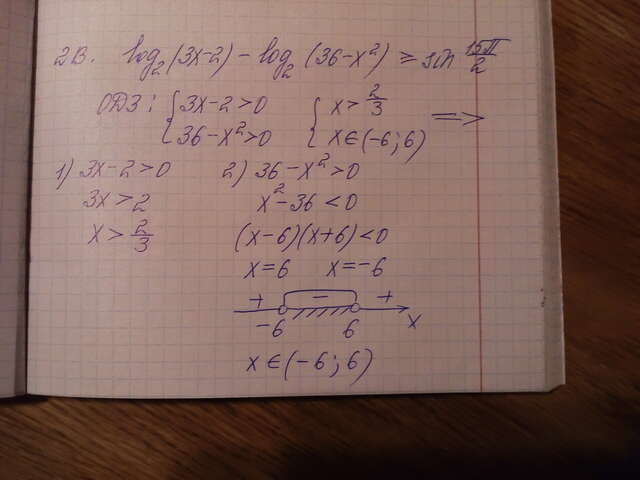 2В. log₂(3x-2) - log₂(36-x²) ≥ sin 15π/2
ОДЗ: { 3x-2>0 { x > 2/3 =>
{ 36-x²>0 { x∈(-6;6)
1) 3x-2>0 2) 36-x²>0
3x>2 x²-36<0
x > 2/3 (x-6)(x+6)<0
x=6 x=-6
+ - +
-6 6 x
x∈(-6;6)